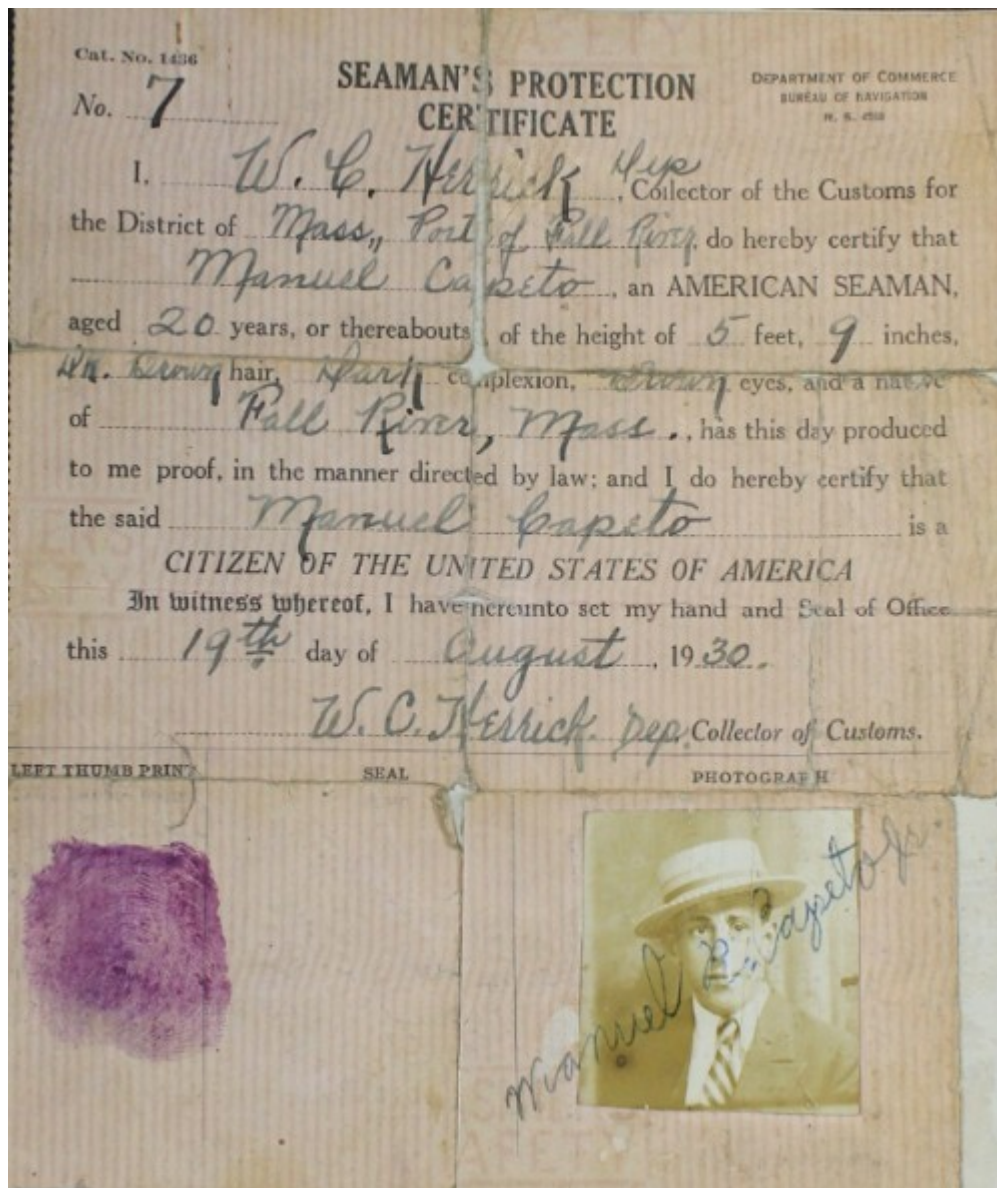 Cat. No. 1436
No. 7
SEAMAN'S PROTECTION
CERTIFICATE
DEPARTMENT OF COMMERCE
BUREAU OF NAVIGATION
I, W. C. Herrick Dep, Collector of the Customs for
the District of Mass., Port of Fall River, do hereby certify that
Manuel Capeto, an AMERICAN SEAMAN,
aged 20 years, or thereabouts, of the height of 5 feet, 9 inches,
Dk. Brown hair, Dark complexion, Brown eyes, and a native
of Fall River, Mass., has this day produced
to me proof, in the manner directed by law; and I do hereby certify that
the said Manuel Capeto is a
CITIZEN OF THE UNITED STATES OF AMERICA
In witness whereof, I have hereunto set my hand and Seal of Office
this 19th day of August, 1930.
W. C. Herrick Dep. Collector of Customs.
LEFT THUMB PRINT
SEAL
PHOTOGRAPH
Manuel R. Capeto Jr.